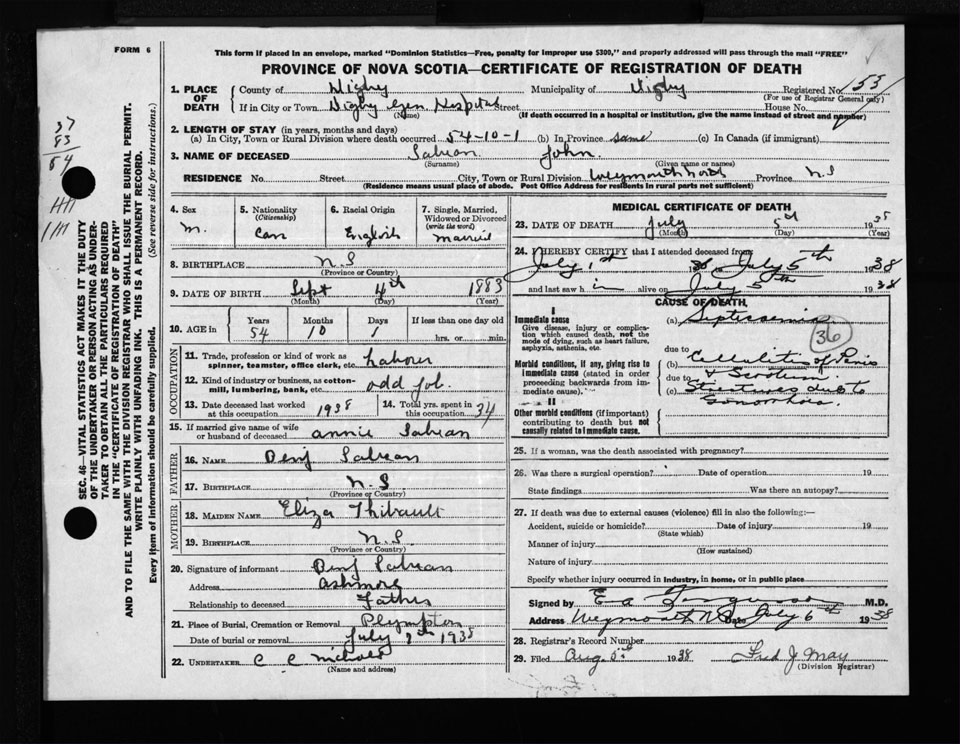 FORM 6
This form if placed in an envelope, marked "Dominion Statistics—Free, penalty for improper use $300," and properly addressed will pass through the mail "FREE"
PROVINCE OF NOVA SCOTIA—CERTIFICATE OF REGISTRATION OF DEATH
37
83
54
SEC. 46—VITAL STATISTICS ACT MAKES IT THE DUTY
OF THE UNDERTAKER OR PERSON ACTING AS UNDER-
TAKER TO OBTAIN ALL THE PARTICULARS REQUIRED
IN THE "CERTIFICATE OF REGISTRATION OF DEATH"
AND TO FILE THE SAME WITH THE DIVISION REGISTRAR WHO SHALL ISSUE THE BURIAL PERMIT.
WRITE PLAINLY WITH UNFADING INK. THIS IS A PERMANENT RECORD.
Every item of information should be carefully supplied. (See reverse side for instructions.)
1. PLACE OF DEATH County of Digby Municipality of Digby Registered No. 53
(For use of Registrar General only)
If in City or Town Digby Gen Hospital Street House No.
(Name) (If death occurred in a hospital or institution, give the name instead of street and number)
2. LENGTH OF STAY (in years, months and days)
(a) In City, Town or Rural Division where death occurred 54-10-1 (b) In Province same (c) In Canada (if immigrant)
3. NAME OF DECEASED Sabean John
(Surname) (Given name or names)
RESIDENCE No. Street City, Town or Rural Division Weymouth North Province N.S
(Residence means usual place of abode. Post Office Address for residents in rural parts not sufficient)
4. Sex
M.
5. Nationality
(Citizenship)
Can
6. Racial Origin
English
7. Single, Married, Widowed or Divorced
(write the word)
Married
8. BIRTHPLACE N.S
(Province or Country)
9. DATE OF BIRTH Sept 4th 1883
(Month) (Day) (Year)
10. AGE in Years Months Days If less than one day old
54 10 1 hrs. or min.
OCCUPATION
11. Trade, profession or kind of work as
spinner, teamster, office clerk, etc. Labour
12. Kind of industry or business, as cotton-
mill, lumbering, bank, etc. odd job.
13. Date deceased last worked at this occupation 1938 14. Total yrs. spent in this occupation 34
15. If married give name of wife
or husband of deceased Annie Sabean
FATHER
16. NAME Benj Sabean
17. BIRTHPLACE N.S
(Province or Country)
MOTHER
18. MAIDEN NAME Eliza Thibault
19. BIRTHPLACE N.S.
(Province or Country)
20. Signature of informant Benj Sabean
Address Ashmore
Relationship to deceased Father
21. Place of Burial, Cremation or Removal Plympton
Date of burial or removal July 1938
22. UNDERTAKER C C Nichols
(Name and address)
MEDICAL CERTIFICATE OF DEATH
23. DATE OF DEATH July 5th 1938
(Month) (Day) (Year)
24. I HEREBY CERTIFY that I attended deceased from
July 1st 38 July 5th 1938
and last saw h im alive on July 5th 1938
CAUSE OF DEATH
I
Immediate cause (a) Septicaemia
36
Give disease, injury or complica-
tion which caused death, not the
mode of dying, such as heart failure,
asphyxia, asthenia, etc. due to
Morbid conditions, if any, giving rise to (b) Cellulitis of Penis
immediate cause (stated in order due to & Scrotum
proceeding backwards from im- (c) Strictures due to
mediate cause). Gonorrhoea.
II
Other morbid conditions (if important)
contributing to death but not
causally related to immediate cause.
25. If a woman, was the death associated with pregnancy?
26. Was there a surgical operation? Date of operation 19
State findings Was there an autopsy?
27. If death was due to external causes (violence) fill in also the following:—
Accident, suicide or homicide? Date of injury 19
(State which)
Manner of injury
(How sustained)
Nature of injury
Specify whether injury occurred in industry, in home, or in public place
Signed by E a Ferguson M.D.
Address Weymouth N.S Date July 6th 1938
28. Registrar's Record Number
29. Filed Aug. 5th 1938 Fred J. May
(Division Registrar)